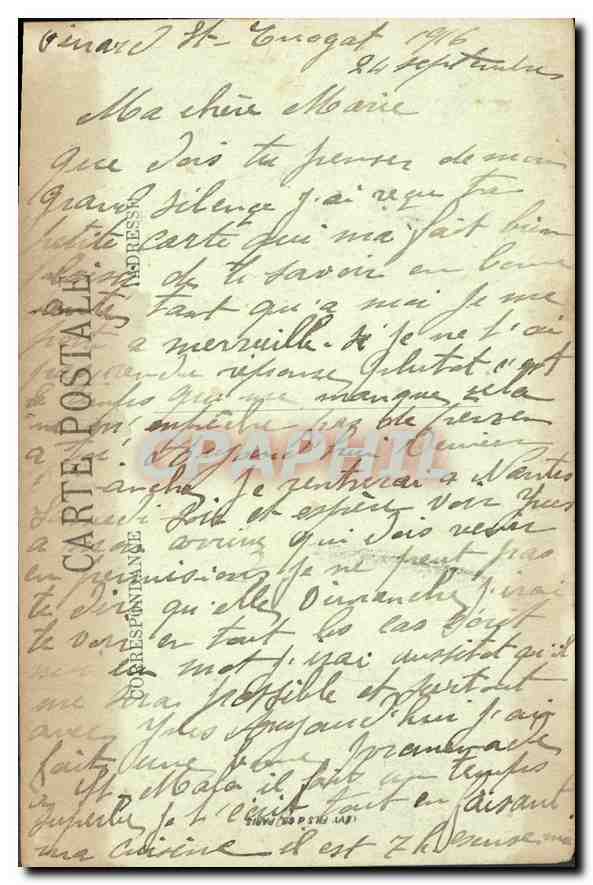 Dinard St-Enogat 1916
24 septembre
Ma chère Marie
que dois tu penser de mon
grand silence j'ai reçu ta
petite carte qui ma fait bien
plaisir de te savoir en bonne
santé, tant qu'a moi je me
porte a merveille. si je ne t'ai
pas rendu réponse plutot c'est
le temps qui me manque cela
m'empêche pas de penser
a toi. Aujourd'hui dernier
dimanche, je rentrerai a Nantes
samedi soir et espère voir Yves
a mon arrivée qui dois venir
en permission, je ne peut pas
te dire qu'elle Dimanche j'irai
te voir en tout les cas
un mot j'irai aussitot qu'il
me sera possible et surtout
avec Yves Aujourd'hui j'ai
fait une bonne promenade
a St. Malo il fais un temps
superbe je t'écrit tout en faisant
ma cuisine il est 7h excuse ma
CARTE POSTALE
CORRESPONDANCE
ADRESSE
CPAPHIL